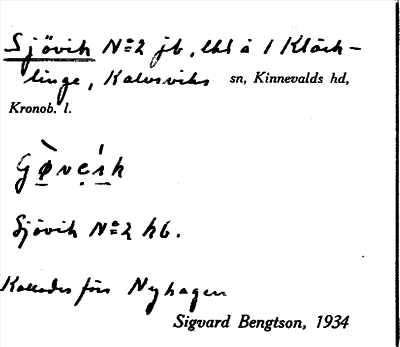 Sjövik No 2 jb, lht å 1 Kläck-
linge, Kalvsviks sn, Kinnevalds hd,
Kronob. l.
Sjövik No 2 hb.
Kallades förr Nyhagen
Sigvard Bengtson, 1934